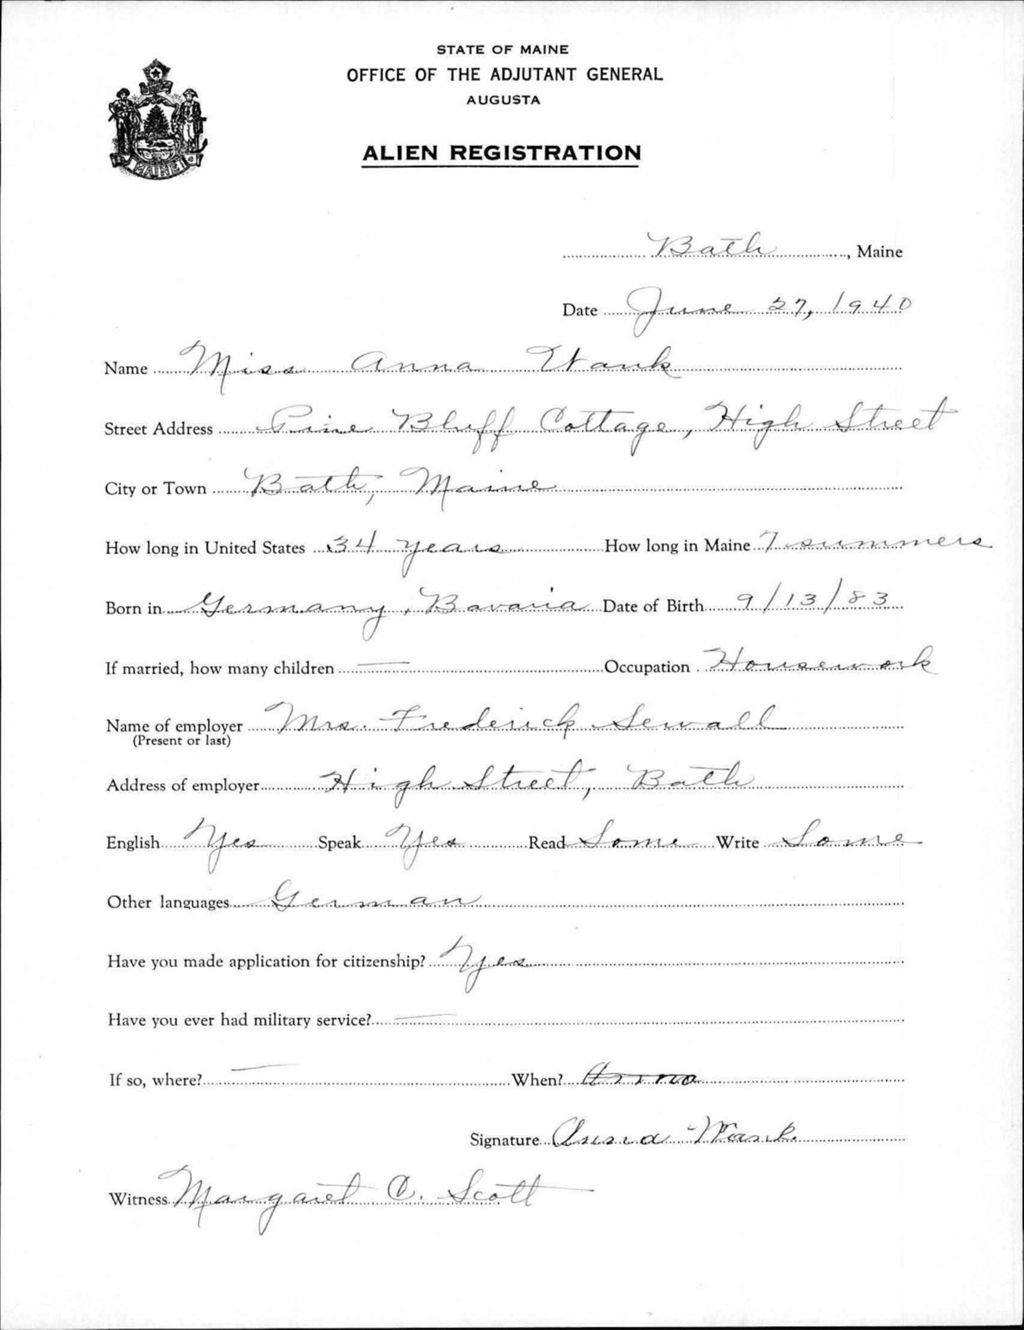 STATE OF MAINE
OFFICE OF THE ADJUTANT GENERAL
AUGUSTA
ALIEN REGISTRATION
MAINE
Bath, Maine
Date June 27, 1940
Name Miss Anna Wank
Street Address Pine Bluff Cottage, High Street
City or Town Bath, Maine
How long in United States 34 years How long in Maine 7 summers
Born in Germany, Bavaria Date of Birth 9/13/83
If married, how many children — Occupation Housework
Name of employer Mrs. Frederick Sewall
(Present or last)
Address of employer High Street, Bath
English Yes Speak Yes Read Some Write Some
Other languages German
Have you made application for citizenship? Yes
Have you ever had military service? —
If so, where? — When? Anna
Signature Anna Wank
Witness Margaret C. Scott